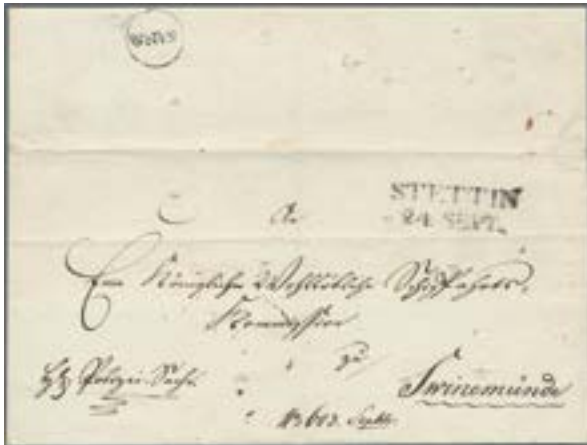 STETTIN
24 SEPT.
An
Eine Königliche Wohllöbliche Schiffahrts-
Kommission
zu
Swinemünde
Polizei-Sache